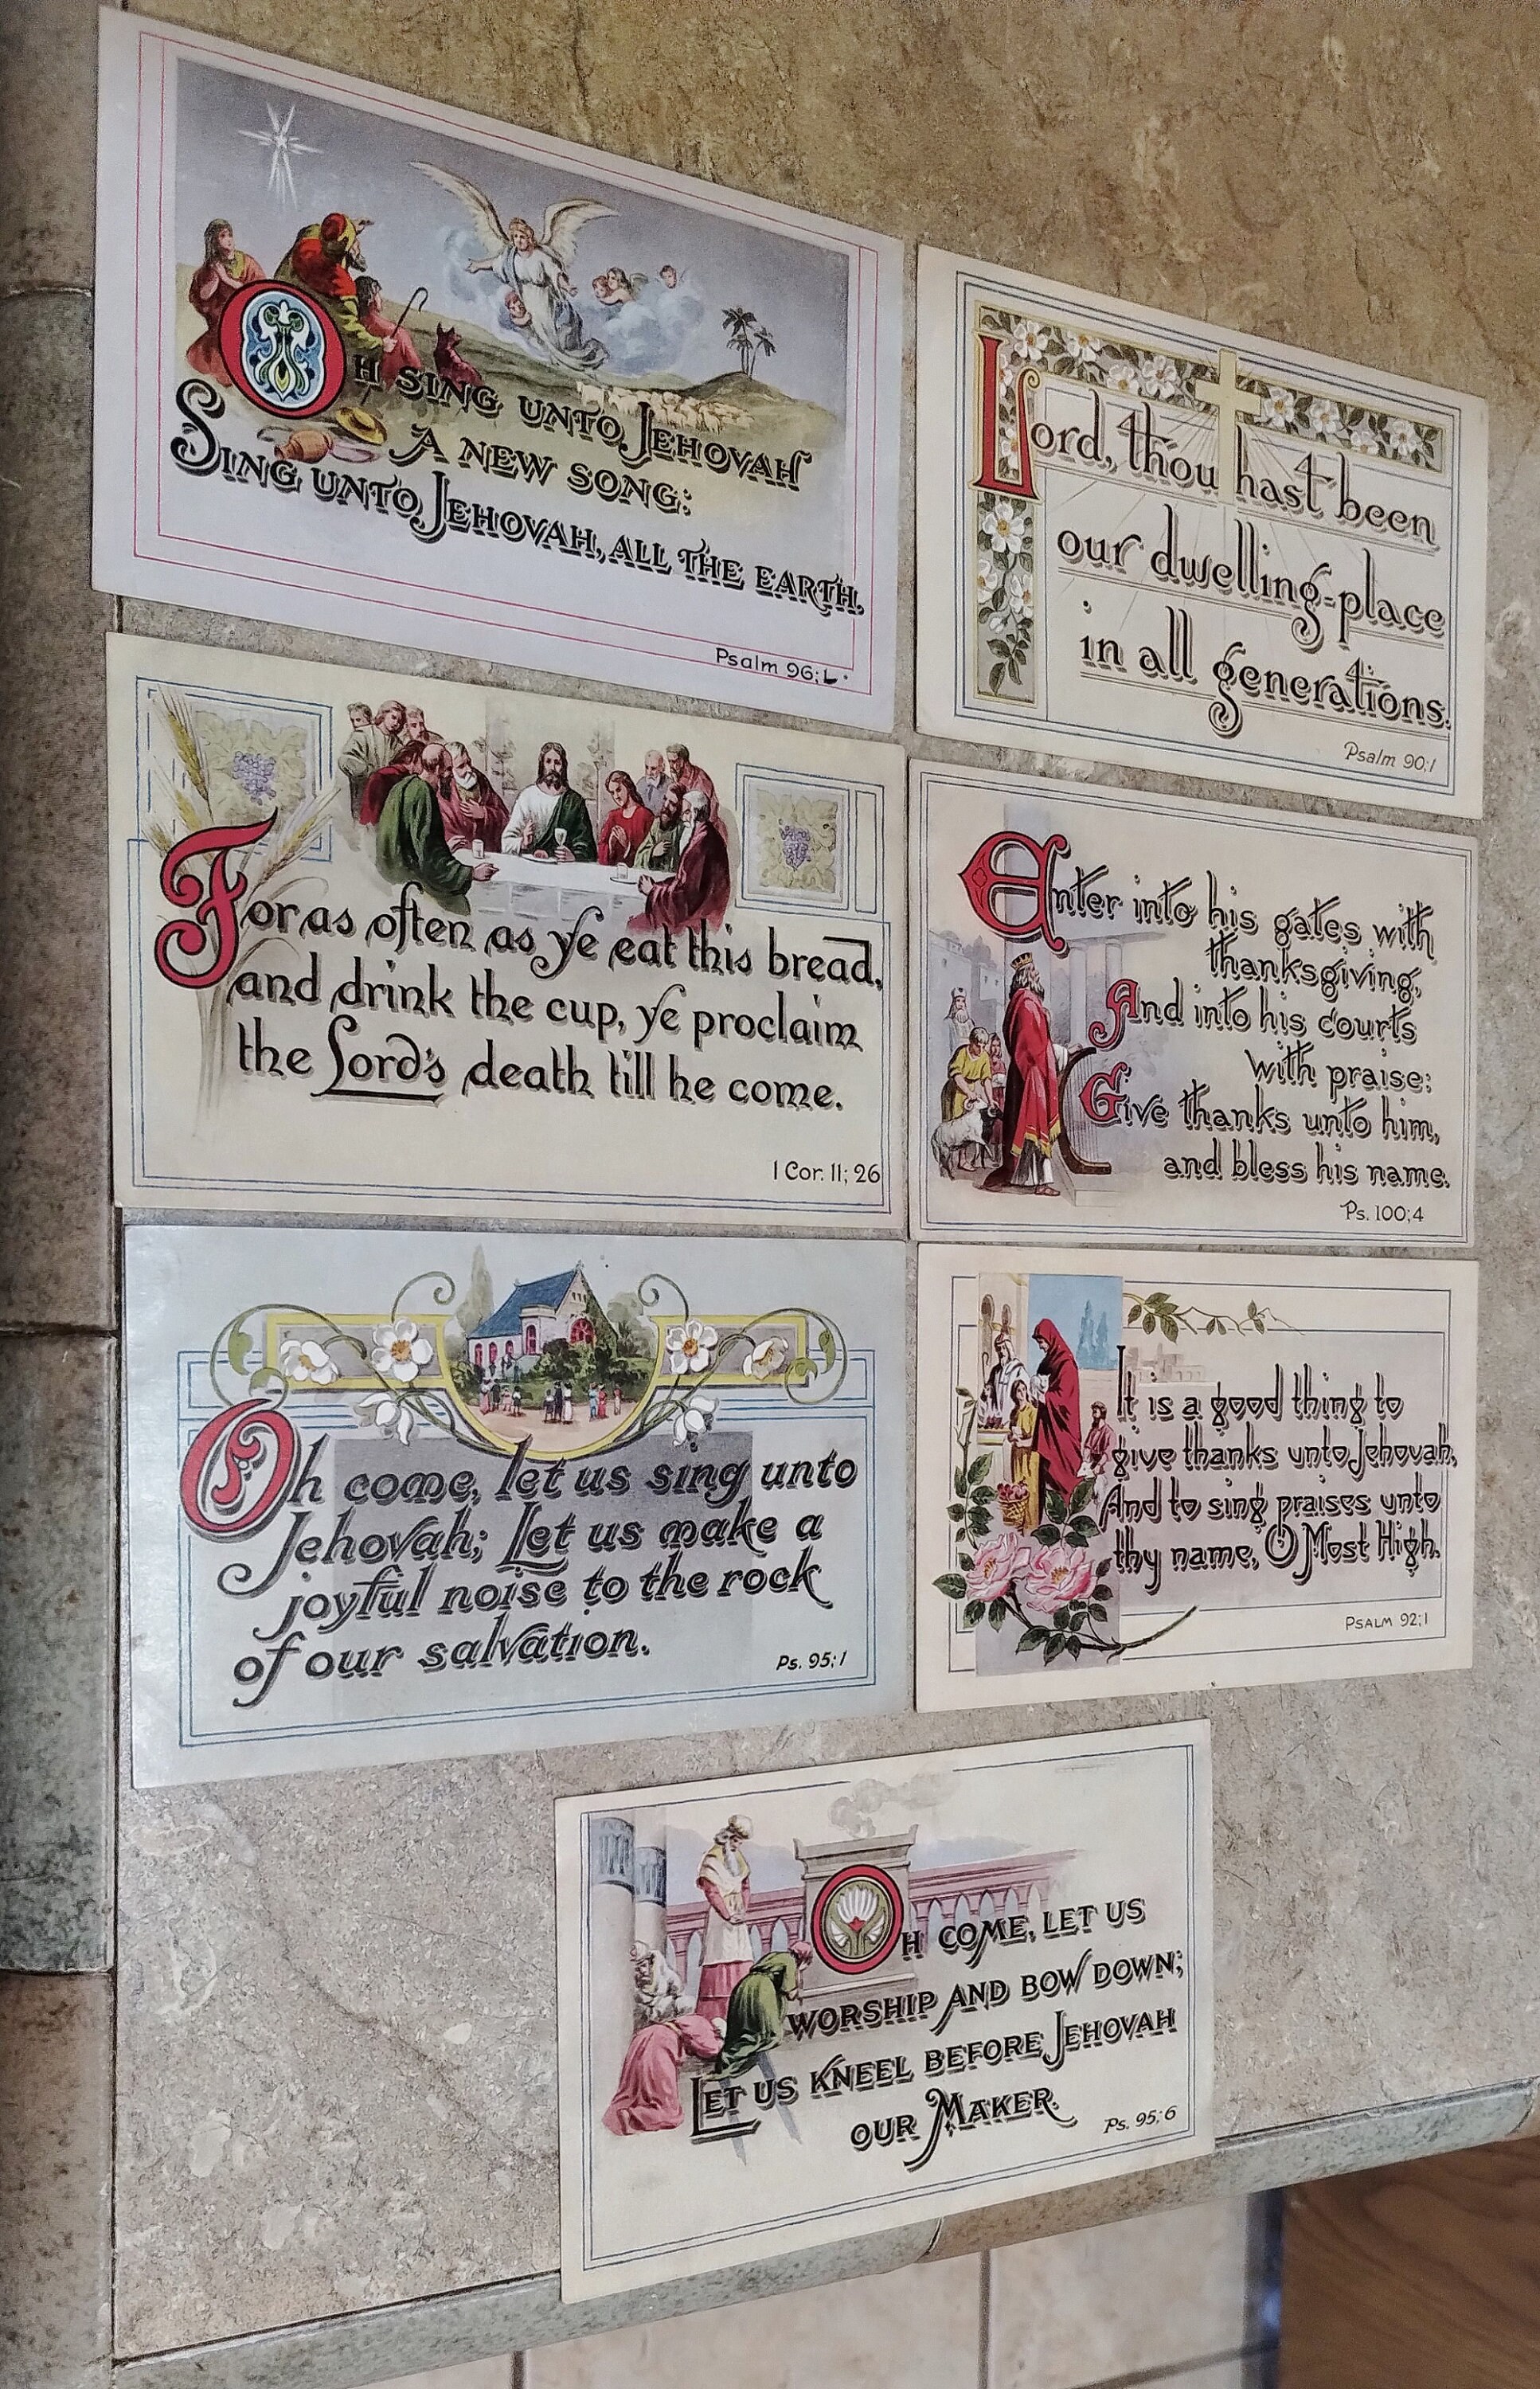 Oh sing unto Jehovah
a new song:
Sing unto Jehovah, all the earth.
Psalm 96;1.
Lord, thou hast been
our dwelling-place
in all generations.
Psalm 90;1
For as often as ye eat this bread,
and drink the cup, ye proclaim
the Lord's death till he come.
1 Cor. 11; 26
Enter into his gates with
thanksgiving,
And into his courts
with praise:
Give thanks unto him,
and bless his name.
Ps. 100;4
Oh come, let us sing unto
Jehovah; Let us make a
joyful noise to the rock
of our salvation.
Ps. 95;1
It is a good thing to
give thanks unto Jehovah,
And to sing praises unto
thy name, O Most High.
Psalm 92;1
Oh come, let us
worship and bow down;
Let us kneel before Jehovah
our Maker.
Ps. 95;6